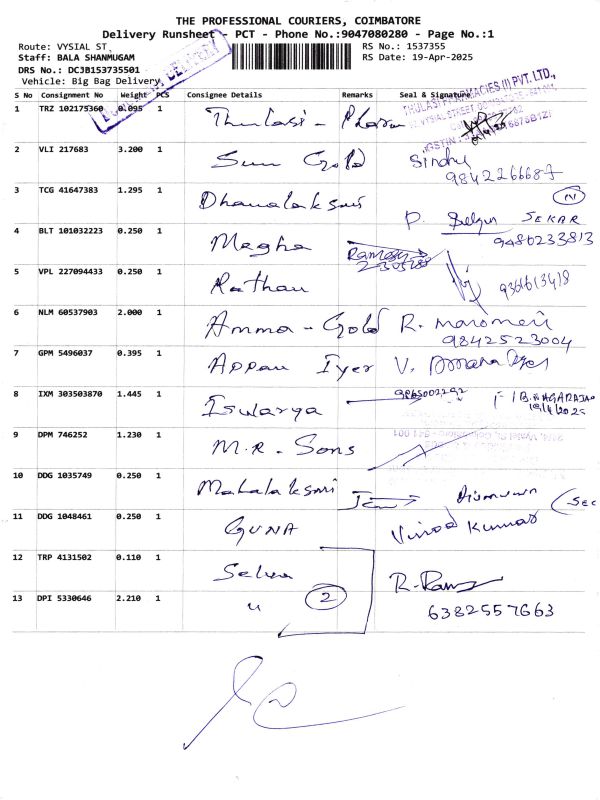 THE PROFESSIONAL COURIERS, COIMBATORE
Delivery Runsheet - PCT - Phone No.:9047080280 - Page No.:1
Route: VYSIAL ST
RS No.: 1537355
Staff: BALA SHANMUGAM
RS Date: 19-Apr-2025
DRS No.: DCJB153735501
Vehicle: Big Bag Delivery
S No Consignment No Weight PCS Consignee Details Remarks Seal & Signature
1 TRZ 102175360 0.095 1 Thulasi - Pharma
THULASI PHARMACIES (I) PVT. LTD.,
2 VLI 217683 3.200 1 Sun Gold Sindhu
9842266687
3 TCG 41647383 1.295 1 Dhanalaksmi
P. SEKAR
9480233813
4 BLT 101032223 0.250 1 Megha Ramesh
5 VPL 227094433 0.250 1 Rathan
6 NLM 60537903 2.000 1 Amma - Gold R.
9842523004
7 GPM 5496037 0.395 1 Appau Iyer V.
8 IXM 303503870 1.445 1 Iswarya B. NAGARAJAN
19/4/2025
9 DPM 746252 1.230 1 M.R. Sons
10 DDG 1035749 0.250 1 Mahalaksmi
11 DDG 1048461 0.250 1 GUNA Vinod Kumar
(SEC
12 TRP 4131502 0.110 1 Selva
13 DPI 5330646 2.210 1 " 2
6382557663